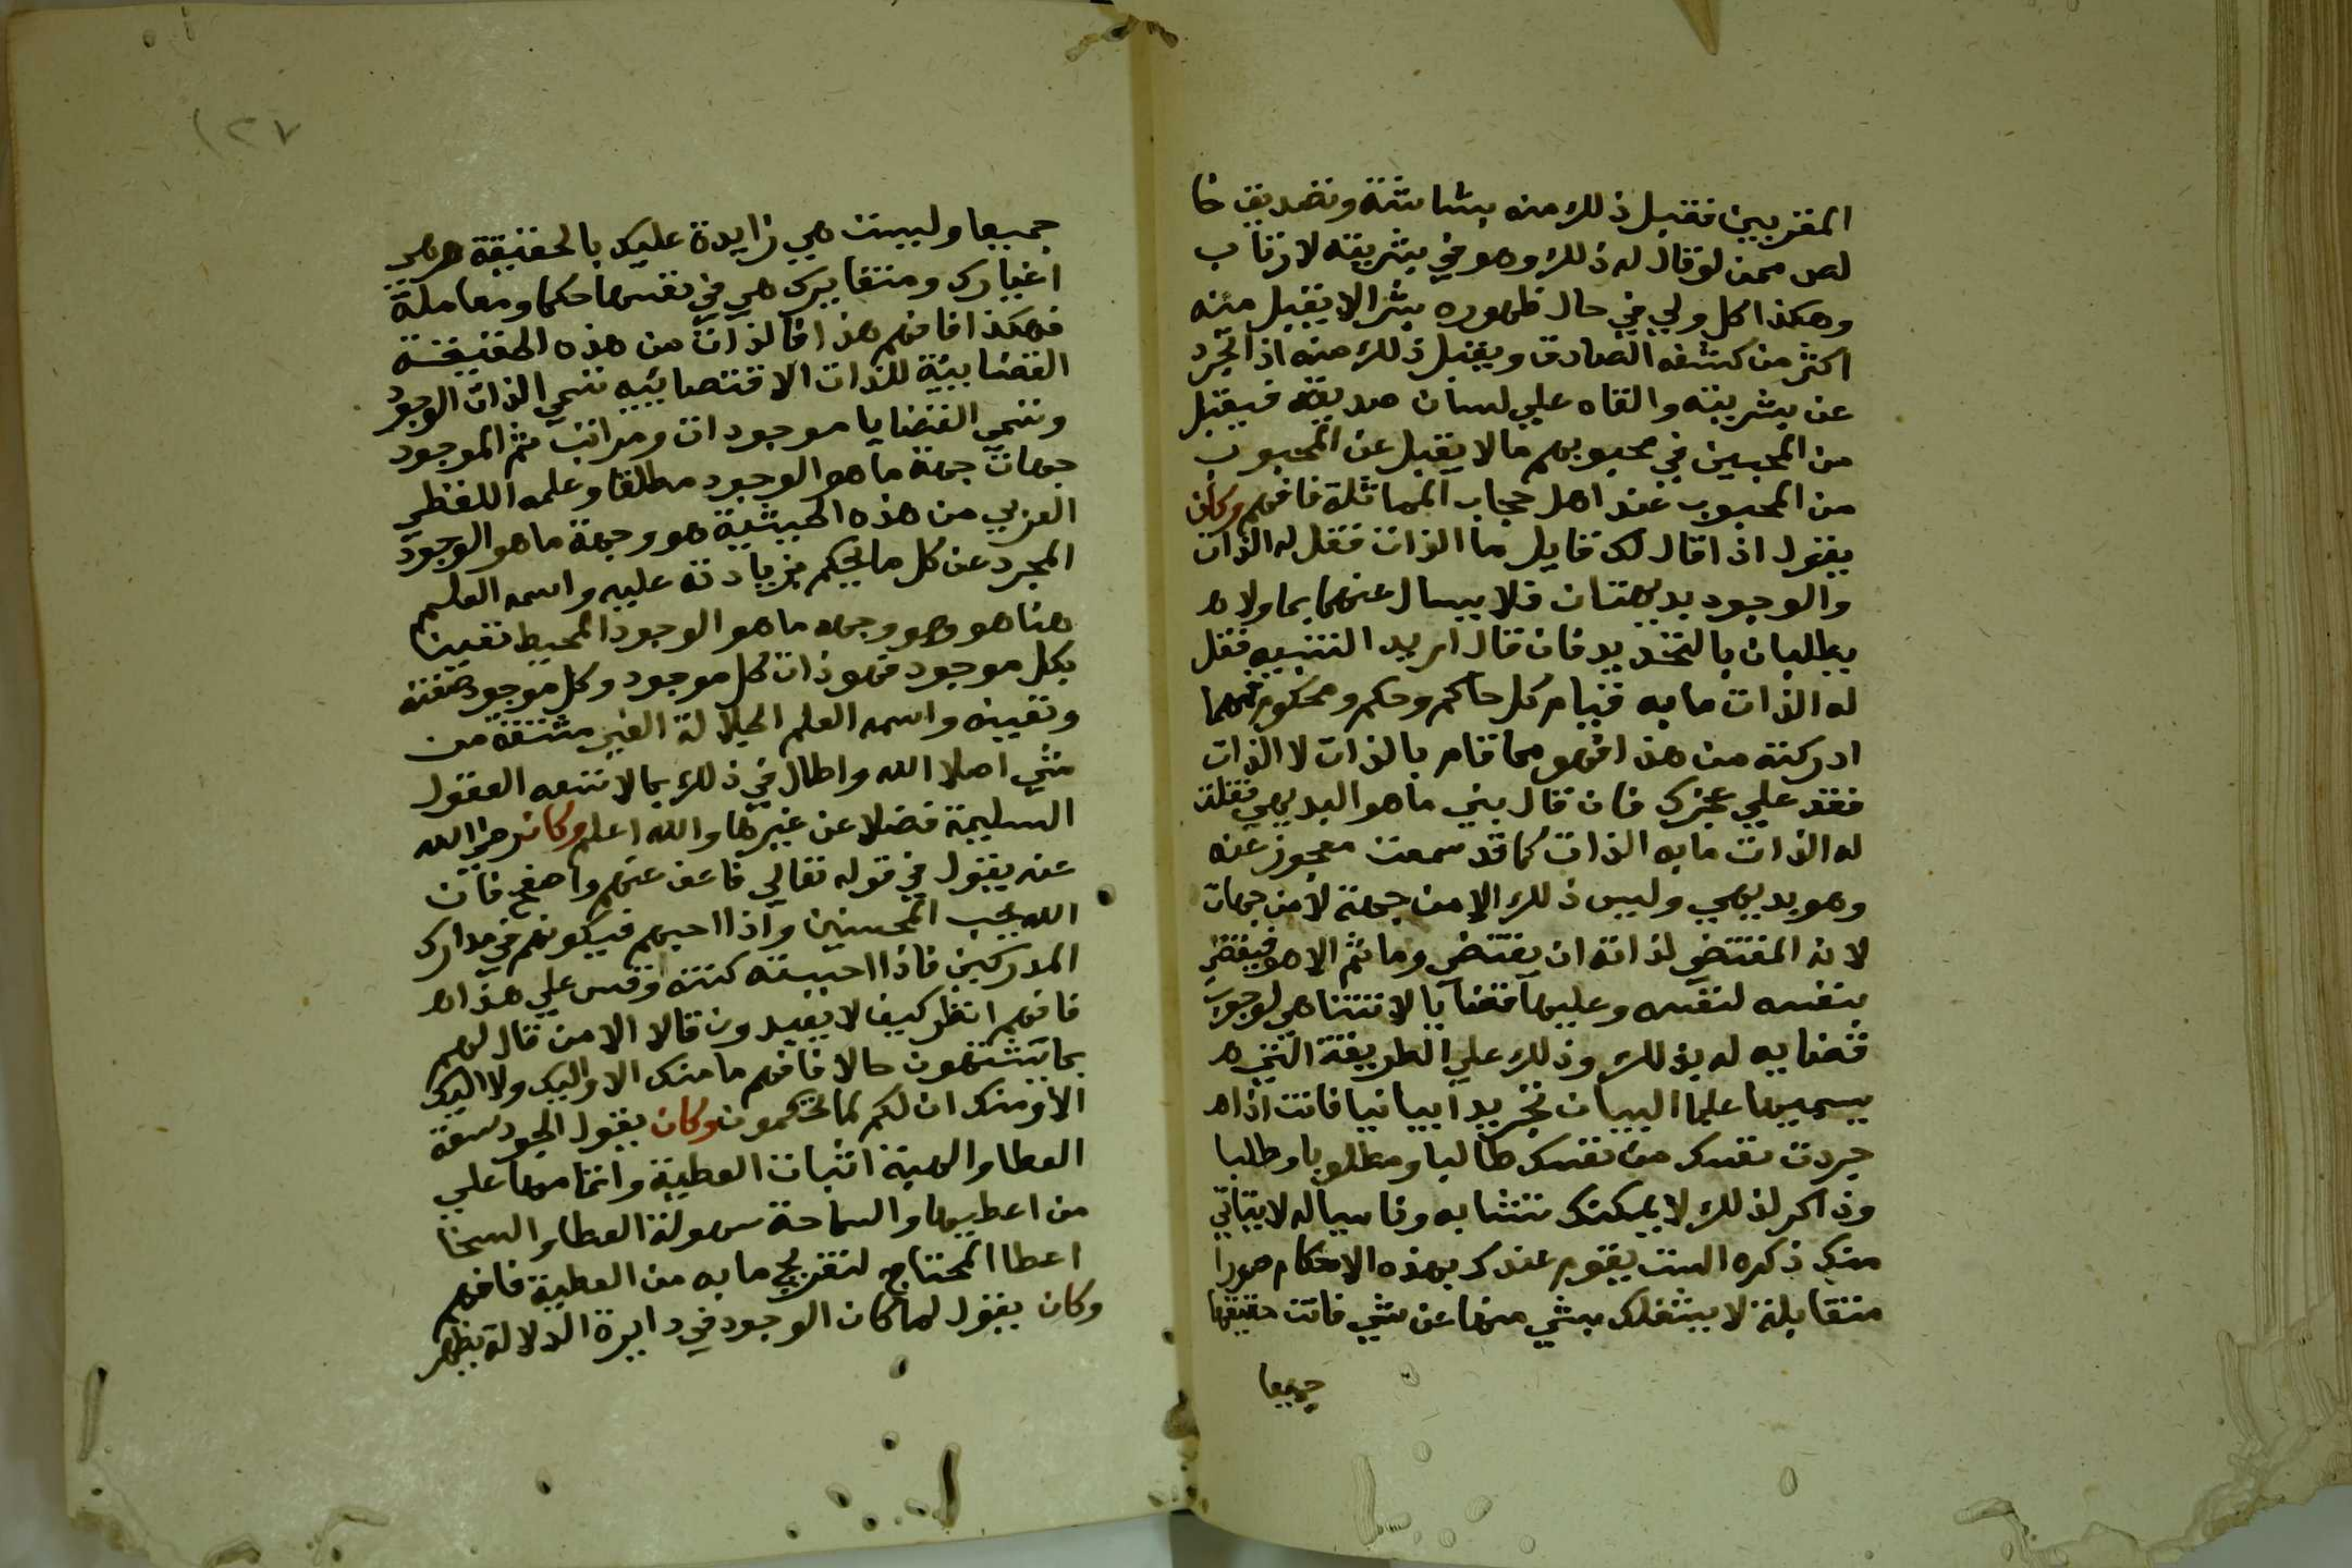 المقربين فقبل ذلك منه بشاشة وتصديق خا
لص ممن لو قال له ذلك وهو في بشريته لارتاب
وهكذا كل ولي في حال ظهوره بشرا لا يقبل منه
اكثر من كشفه الصادق ويقبل ذلك منه اذا تجرد
عن بشريته والقاه علي لسان صديقه فيقبل
من المحبين في محبوبهم مالا يقبل عن المحبوب
من المحبوب عند اهل حجاب المماثلة فافهم وكان
يقول اذا قال لك قايل ما الذات فقل له الذات
والوجود بديهتان فلا يسال عنهما بما ولا
يطلبان بالتحديد فان قال اريد التنبيه فقل
له الذات ما به قيام كل حاكم وحكم ومحكوم فمهما
ادركته من هذا فهو مما قام بالذات لا الذات
فقد علي عجزك فان قال بيني ما هو البديهي فقلت
له الذات ما به الذات كما قد سمعت معجوز عنه
وهو بديهي وليس ذلك الا من جهة لا من جهات
لانه المقتضي لذاته ان يقتضي وما ثم الا هو فيقضي
بنفسه لنفسه وعليها قضايا لا تتناهي لوجوب
قضايه له بذلك وذلك علي الطريقة التي
يسميها علما البيان تجريدا بيانيا فانت اذا
جردت نفسك من نفسك طالبا ومطلوبا وطلبا
وذاكر لذلك لا يمكنك تتشابه وناسيا له لا يتاتي
منك ذكره الست يقوم عندك بهذه الاحكام صورا
متقابلة لا يشغلك بشي منها عن شي فانت حقيقتها
جميعا
١٢٧
جميعا وليست هي زايدة عليك بالحقيقة هي
اغيارك ومتغايرك هي في نفسها حكما ومعاملة
فهكذا فافهم هذا فالذات من هذه الحقيقة
القضايية للذات الاقتضاييه تسمي الذات الوجود
وتسمي القضايا موجودات ومراتب ثم الموجود
جهات جهة ما هو الوجود مطلقا وعلمه اللفظي
العربي من هذه الحيثية هو وجهة ما هو الوجود
المجرد عن كل ما يحكم بزيادته عليه واسمه العلم
هنا هو وهو وجهه ما هو الوجود المحيط تعينا
بكل موجود فهو ذات كل موجود وكل موجود صفته
وتعيينه واسمه العلم الجلالة الغير مشتقة من
شي اصلا الله واطال في ذلك بما لا تسعه العقول
السليمة فضلا عن غيرها والله اعلم وكان رضي الله
عنه يقول في قوله تعالي فاعف عنهم واصفح فان
الله يحب المحسنين واذا احبهم فيكونهم في مدارك
المدركين فاذا احببته كنته وقس علي هذا
فافهم انظر كيف لا يقيل ون قالا الا من قال لهم
بما يشتهون حالا فافهم ما منك الا واليك ولا اليك
الا ومنك ان لكم لما تحكمون وكان يقول الجود سعة
العطا والهبة اثبات العطية واتمامها علي
من اعطيها والسماحة سهولة العطا والسخا
اعطا المحتاج لتفريج ما به من العطية فافهم
وكان يقول لما كان الوجود في دايرة الدلالة يظهر